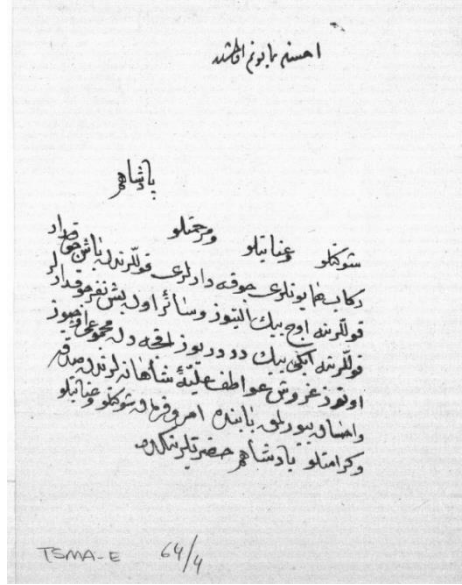 همايونم اولمشدر
پادشاهم
شوكتلو وعنايتلو ومرحمتلو
ركاب همايونلرى چوقه دارلرى قوللرندن باش چوقدار
قوللرينه اوچ بيك التيوز وسائر اون بش نفر چوقدارلر
قوللرينه ايكى بيك دورديوز اقچه دن مجموعى اوچيوز
اوتوز غروش عواطف عليۀ شاهانه لرندن صدقه
واحسان بيورلمق بابنده امر وفرمان شوكتلو وعنايتلو
وكرامتلو پادشاهم حضرتلرينكدر
TSMA-E 64/4